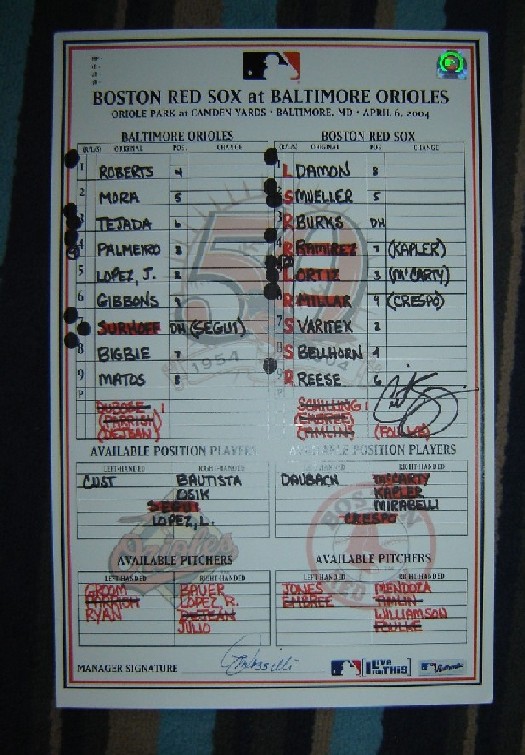 BOSTON RED SOX at BALTIMORE ORIOLES
ORIOLE PARK at CAMDEN YARDS • BALTIMORE, MD • APRIL 6, 2004
BALTIMORE ORIOLES BOSTON RED SOX
ORIGINAL POS. CHANGE ORIGINAL POS. CHANGE
1 ROBERTS 4 L DAMON 8
2 MORA 5 S MUELLER 5
3 TEJADA 6 R BURKS DH
4 PALMEIRO 3 R RAMIREZ 7 (KAPLER)
5 LOPEZ, J. 2 L ORTIZ 3 (McCARTY)
6 GIBBONS 9 R MILLAR 9 (CRESPO)
7 SURHOFF DH (SEGUI) S VARITEK 2
8 BIGBIE 7 S BELLHORN 4
9 MATOS 8 R REESE 6
P DUBOSE 1 SCHILLING 1
(PARRISH) (EMBREE)
(DEJEAN) (TIMLIN) (FOULKE)
50
1954 2004
AVAILABLE POSITION PLAYERS AVAILABLE POSITION PLAYERS
LEFT-HANDED RIGHT-HANDED LEFT-HANDED RIGHT-HANDED
CUST BAUTISTA DAUBACH McCARTY
OSIK KAPLER
SEGUI MIRABELLI
LOPEZ, L. CRESPO
AVAILABLE PITCHERS AVAILABLE PITCHERS
LEFT-HANDED RIGHT-HANDED LEFT-HANDED RIGHT-HANDED
GROOM BAUER JONES MENDOZA
PARRISH LOPEZ R. EMBREE TIMLIN
RYAN DEJEAN WILLIAMSON
JULIO FOULKE
BOSTON
RED
MANAGER SIGNATURE
LIVE FOR THIS